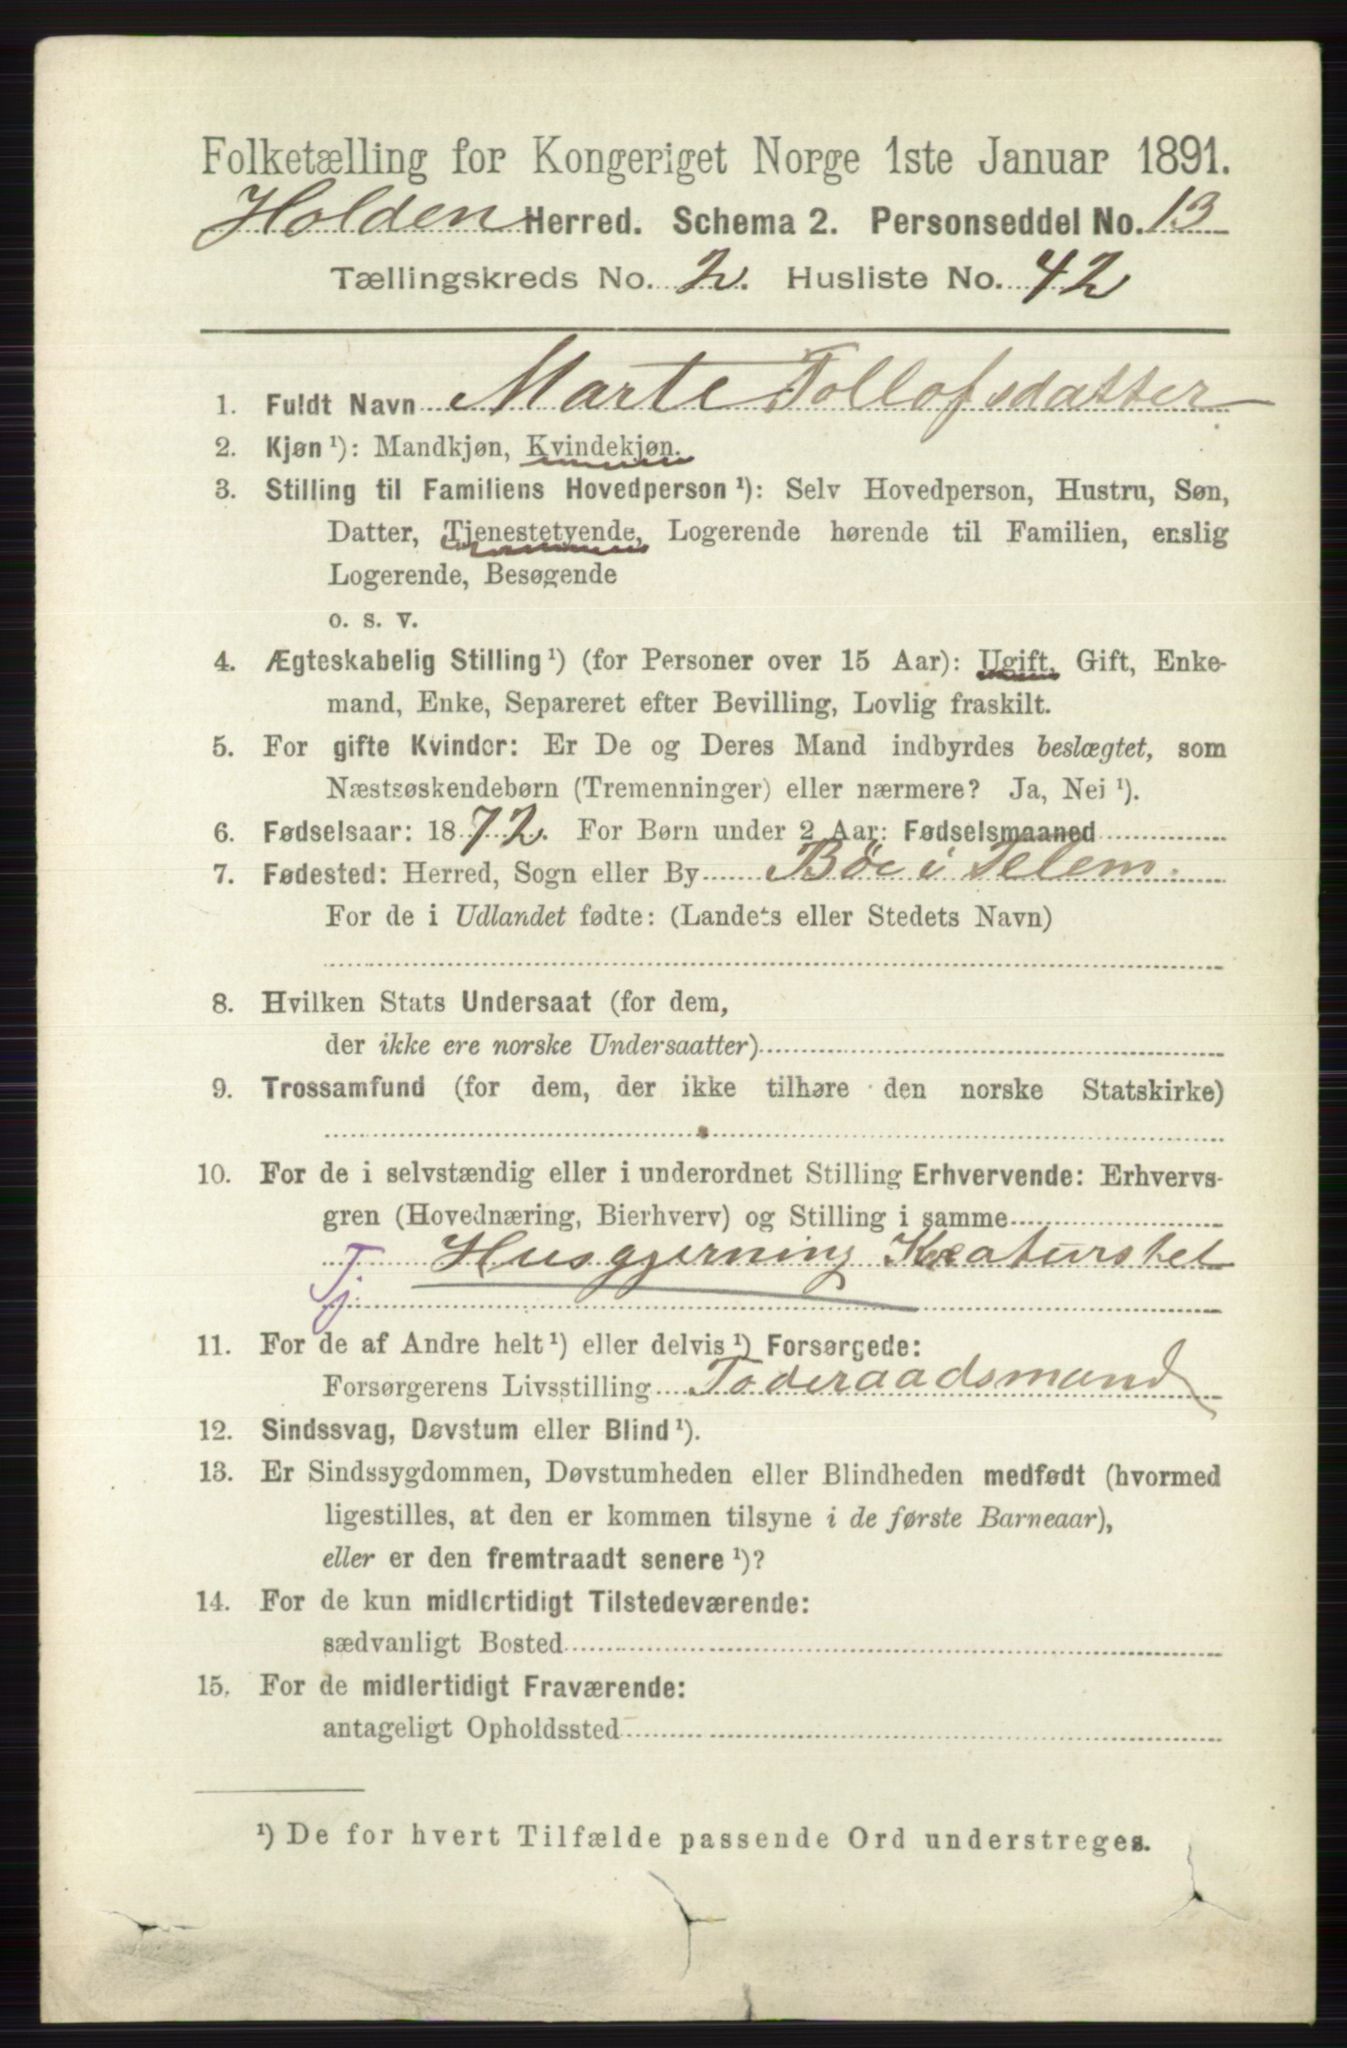 Folketælling for Kongeriget Norge 1ste Januar 1891.
Holden Herred. Schema 2. Personseddel No. 13
Tællingskreds No. 2. Husliste No. 42
1. Fuldt Navn Marte Tollofsdatter
2. Kjøn ¹): Mandkjøn, Kvindekjøn.
3. Stilling til Familiens Hovedperson ¹): Selv Hovedperson, Hustru, Søn,
Datter, Tjenestetyende, Logerende hørende til Familien, enslig
Logerende, Besøgende
o. s. v.
4. Ægteskabelig Stilling ¹) (for Personer over 15 Aar): Ugift, Gift, Enke-
mand, Enke, Separeret efter Bevilling, Lovlig fraskilt.
5. For gifte Kvinder: Er De og Deres Mand indbyrdes beslægtet, som
Næstsøskendebørn (Tremenninger) eller nærmere? Ja, Nei ¹).
6. Fødselsaar: 1872. For Børn under 2 Aar: Fødselsmaaned
7. Fødested: Herred, Sogn eller By Böe i Telem.
For de i Udlandet fødte: (Landets eller Stedets Navn)
8. Hvilken Stats Undersaat (for dem,
der ikke ere norske Undersaatter)
9. Trossamfund (for dem, der ikke tilhøre den norske Statskirke)
10. For de i selvstændig eller i underordnet Stilling Erhvervende: Erhvervs-
gren (Hovednæring, Bierhverv) og Stilling i samme
Husgjerning Kreaturstel
Tj.
11. For de af Andre helt ¹) eller delvis ¹) Forsørgede:
Forsørgerens Livsstilling Foderaadsmand
12. Sindssvag, Døvstum eller Blind ¹).
13. Er Sindssygdommen, Døvstumheden eller Blindheden medfødt (hvormed
ligestilles, at den er kommen tilsyne i de første Barneaar),
eller er den fremtraadt senere ¹)?
14. For de kun midlertidigt Tilstedeværende:
sædvanligt Bosted
15. For de midlertidigt Fraværende:
antageligt Opholdssted
¹) De for hvert Tilfælde passende Ord understreges.